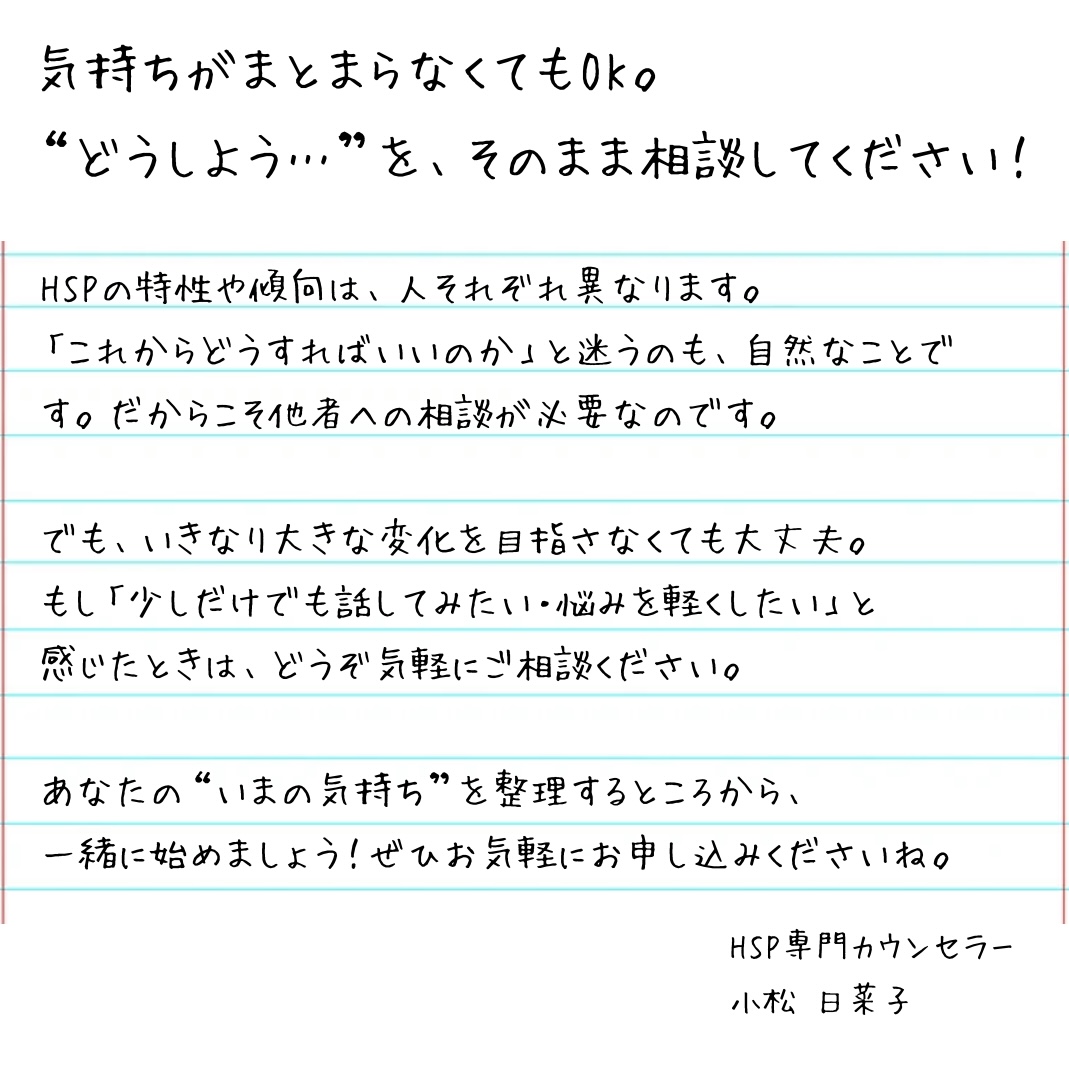 気持ちがまとまらなくてもOk。
“どうしよう…”を、そのまま相談してください!
HSPの特性や傾向は、人それぞれ異なります。
「これからどうすればいいのか」と迷うのも、自然なことで
す。だからこそ他者への相談が必要なのです。
でも、いきなり大きな変化を目指さなくても大丈夫。
もし「少しだけでも話してみたい・悩みを軽くしたい」と
感じたときは、どうぞ気軽にご相談ください。
あなたの“いまの気持ち”を整理するところから、
一緒に始めましょう!ぜひお気軽にお申し込みくださいね。
HSP専門カウンセラー
小松 日菜子